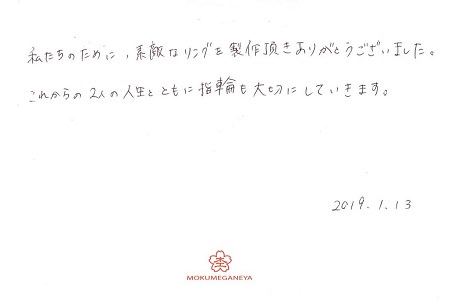 私たちのために、素敵なリングを製作頂きありがとうございました。
これからの2人の人生とともに指輪も大切にしていきます。
2019.1.13
杢
MOKUMEGANEYA